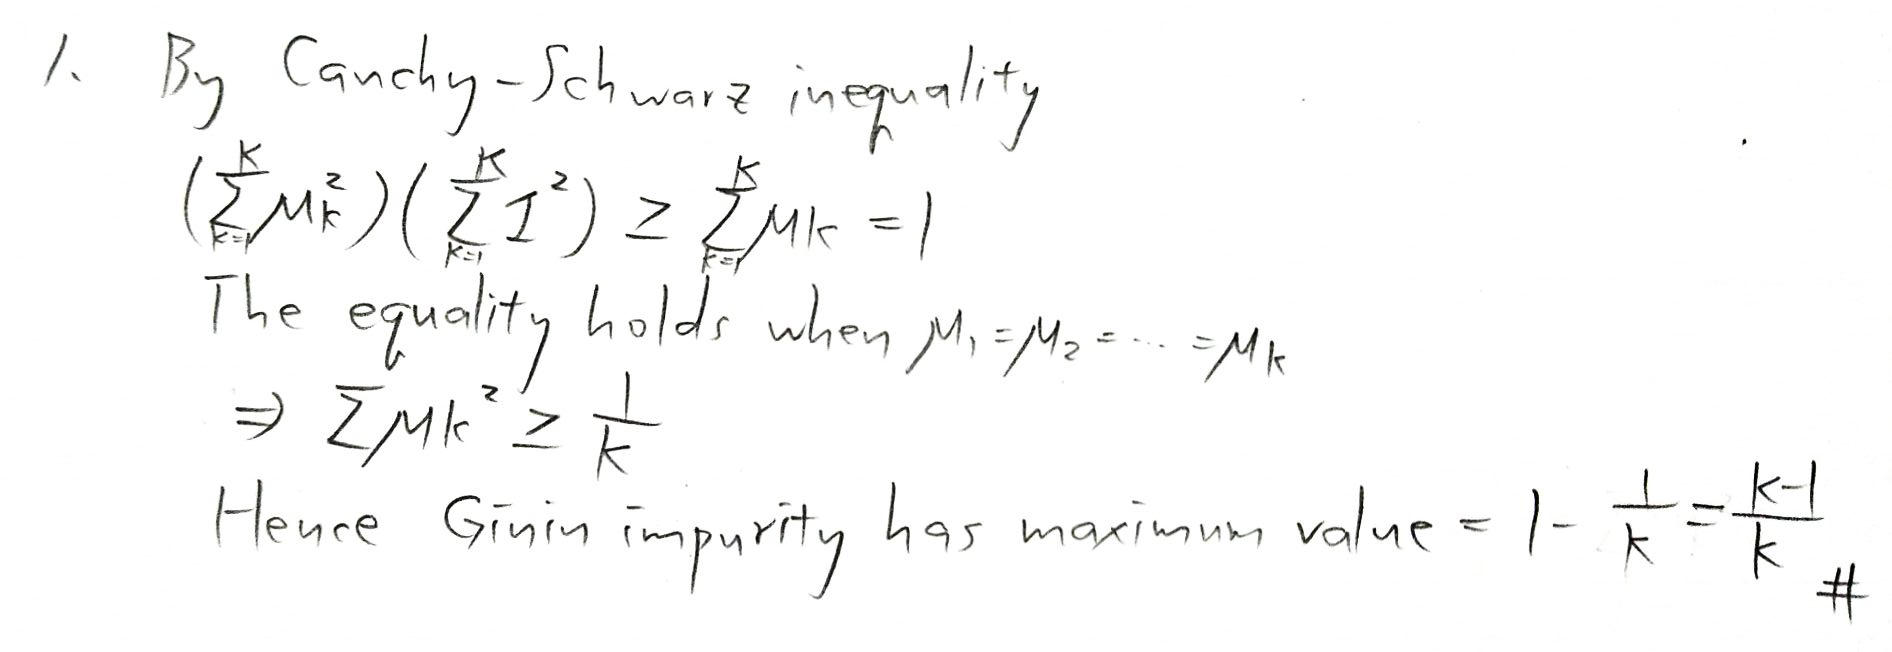 1. By Cauchy-Schwarz inequality
(∑_{k=1}^{K} μ_k^2)(∑_{k=1}^{K} 1^2) ≥ ∑_{k=1}^{K} μ_k = 1
The equality holds when μ_1 = μ_2 = ... = μ_k
⇒ ∑ μ_k^2 ≥ 1/k
Hence Ginin impurity has maximum value = 1 - 1/k = k-1/k #